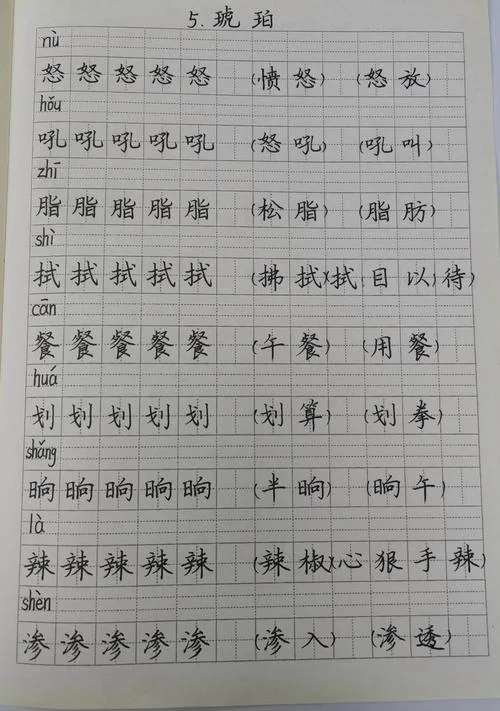 5.琥珀
nù
怒 怒 怒 怒 怒 (愤 怒) (怒 放)
hǒu
吼 吼 吼 吼 吼 (怒 吼) (吼 叫)
zhī
脂 脂 脂 脂 脂 (松 脂) (脂 肪)
shì
拭 拭 拭 拭 拭 (拂 拭)(拭 目 以 待)
cān
餐 餐 餐 餐 餐 (午 餐) (用 餐)
huá
划 划 划 划 划 (划 算) (划 拳)
shǎng
晌 晌 晌 晌 晌 (半 晌) (晌 午)
là
辣 辣 辣 辣 辣 (辣 椒)(心 狠 手 辣)
shèn
渗 渗 渗 渗 渗 (渗 入) (渗 透)